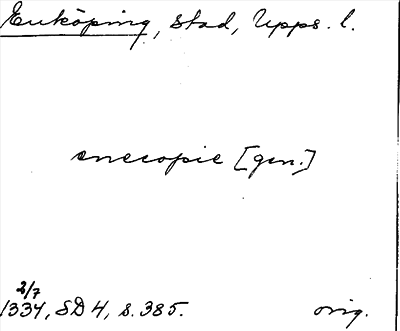 Enköping, stad, Upps. l.
enecopie [gen.]
2/7
1334, SD 4, s. 385. orig.